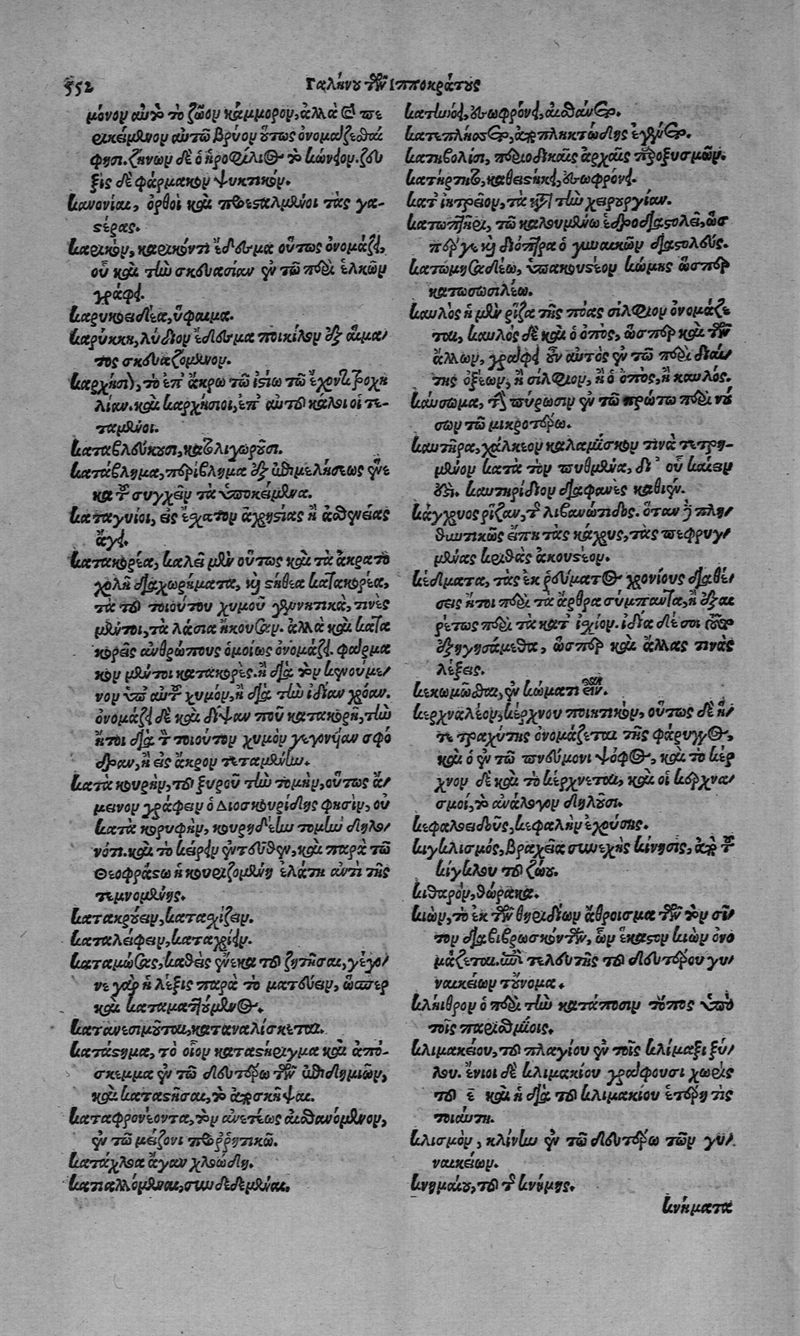 552
Γαλήνου τῶν Ἱπποκράτους
μόνον αὐτὸ τὸ ζῶον κάμμορον, ἀλλὰ καὶ τὸ πε
ρικείμενον αὐτῶ βρύον οὕτως ὀνομάζεσθαί
φησι. ζήνων δὲ ὁ ἡροφίλειος τὸ κώνειον. ζεῦ
ξις δὲ φάρμακον ψυκτικόν.
κανονίαι, ὀρθοὶ καὶ προεσταλμένοι τὰς γα-
στέρας.
καρικὸν, καρικόν τι ἔδεσμα οὕτως ὀνομάζει,
οὗ καὶ τὴν σκευασίαν ἐν τῶ περὶ ἑλκῶν
γράφει.
καρυκοειδέα, ὕφαιμα.
καρύκκη, λύδιον ἔδεσμα ποικίλον ἐξ αἵμα
τος σκευαζομένον.
καρχήσιοι, τὸ ἐπ' ἄκρω τῶ ἱστίω τῶ ἔχοντι τροχη
λίαν. καὶ καρχήσιοι, ἐπ' αὐτοῦ κάλοι οἱ τε-
ταμένοι.
καταβλάκευσι, κατολιγωροῦσι.
κατάβλημα, περίβλημα ἐξ ἐπιμελήσεως ἕνε
κα τοῦ συγχεῖν τὰ ὑποκείμενα.
καταγυίοι, εἰς ἔσχατον ἀχρηστίας ἢ ἀσθενείας
ἄγει.
κατακορέα, καλεῖ μὲν οὕτως καὶ τὰ ἀκρατο
χολῆ διαχωρήματα, καὶ στήθεα κατακορέα,
τὰ τοῦ τοιούτου χυμοῦ γεννητικὰ, τινὲς
μέντοι, τὰ λάσια ἤκουσαν. ἀλλὰ καὶ κατα
κορεῖς ἀνθρώπους ὁμοίως ὀνομάζει. φάρμα
κον μέντοι κατακορὲς. ἢ διὰ τὸν κενούμε
νον ὑπ' αὐτοῦ χυμόν, ἢ διὰ τὴν ἰδίαν χρόαν.
ὀνομάζει δὲ καὶ δίψαν που κατακορῆ, τὴν
ἤτοι διὰ τὸ τοιοῦτον χυμὸν γεγονῆαν σφό
δραν, ἢ εἰς ἄκρον τεταμένην.
κατὰ κουρὴν, τοῦ ξυροῦ τὴν τομὴν, οὕτως ἄ
μεινον γράφειν ὁ Διοσκουρίδης φησὶν, οὐ
κατὰ κορυφὴν, κουρηδέην τομὴν δηλο
νότι. καὶ τὸ κείρειν ἐντεῦθεν, καὶ παρὰ τῶ
Θεοφράστω ἡ κουριζομένη ἐλάτη ἀντὶ τῆς
τεμνομένης.
κατακρούειν, κατασχίζειν.
καταλέφειν, καταχρίειν.
καταμώσας, καθεὶς ἕνεκα τοῦ ζητῆσαι, γέγο
νε γὰρ ἡ λέξις παρὰ τὸ ματεύειν, ὥσπερ
καὶ καταματτούμενος.
κατανεσιμοῦται, καταναλίσκεται.
κατάστημα, τὸ οἷον καταστήριγμα καὶ ἀπό-
σκεμμα ἐν τῶ δευτέρω τῶν ἐπιδημιῶν,
καὶ καταστῆσαι, τὸ ἀποσκῆψαι.
καταφρονέοντα, τὸν ἀνετέως αἰσθανόμενον,
ἐν τῶ μείζονι προῤῥητικῶ.
κατάχλοα ἄγαν χλοώδη.
κατιαλλόμεναι, συνδεδεμέναι.
κατιόει, ἐσωφρόνει, αἰσθάνετο.
κατεπληγος, ἀποπληκτώδης ἐγένετο.
κατηβολίη, περιοδικαῖς ἀρχαῖς παροξυσμῶν.
κατήρτησο, καθεστήκει, ἐσωφρόνει.
κατ' ἰητρεῖον, τὰ κατὰ τὴν χειρουργίαν.
κατωτῆρι, τῶ καλουμένω ἑδροδιαστολεῖ, ὡς
πέρ γε καὶ διόπτρα ὁ γυναικῶν διαστολεύς.
κατωμησαδέω, ὑπακουστέον κώμης ὥσπερ
κατωσωσιλέω.
καυλὸς ἡ μὲν ῥίζα τῆς πόας σίλφιον ὀνομάζε
ται, καυλὸς δὲ καὶ ὁ ὀπὸς, ὥσπερ καὶ τῶν
ἄλλων, γράφει οὖν αὐτὸς ἐν τῶ περὶ διαί
της ὀξέων, ἢ σίλφιον, ἢ ὁ ὀπὸς, ἢ καυλὸς.
καύσωμα, τὴν πύρωσιν ἐν τῶ πρώτω περὶ νό
σων τῶ μικροτέρω.
καυτῆρα, χάλκεον καλαμίσκον τινὰ τετρη-
μένον κατὰ τὸν πυθμένα, δι' οὗ καίειν
ἔστι. καυτηρίδιον διαφανὲς καθιέν.
κάγχρυος ῥίζαν, τῆς λιβανώτιδος. ὅταν δὲ πλη
θυντικῶς εἴπη τὰς κάχρυς, τὰς πεφρυγ
μένας κριθὰς ἀκουστέον.
κέδματα, τὰς ἐκ ῥεύματος χρονίους διαθέ
σεις ἤτοι περὶ τὰ ἄρθρα σύμπαντα, ἢ ἐξαι
ρέτως περὶ τὰ κατ' ἰσχίον. ἰδίᾳ δέ σοι
ἐξηγησάμεθα, ὥσπερ καὶ ἄλλας τινὰς
λέξεις.
κεκωμῶσθαι, ἐν κώματι εἶναι.
κερχναλέον, κέρχνου ποιητικὸν, οὕτως δὲ ἥ
τε τραχύτης ὀνομάζεται τῆς φάρυγγος,
καὶ ὁ ἐν τῶ πνεύμονι ψόφος, καὶ τὸ κέρ
χνον δὲ καὶ τὸ κέρχνεται, καὶ οἱ κερχνα
σμοὶ, τὸ ἀνάλογον δηλοῦσι.
κεφαλοειδοῦς, κεφαλὴν ἐχούσης.
κιγκλισμὸς, βραχεῖα συνεχὴς κίνησις, ἀπὸ τοῦ
κίγκλου τοῦ ζώου.
κιθαρὸν, θώρακα.
κίων, τὸ ἐκ τῶν θηριδίων ἄθροισμα τῶν τὸν σῖ
τον διαβιβρωσκόντων, ὧν ἕκαστον κίων ὀνο
μάζεται. ἐπὶ τελευτῆς τοῦ δευτέρου γυ
ναικείων τοὔνομα.
κλήϊθρον ὁ περὶ τὴν κατάποσιν τόπος ὑπὸ
τοῖς παρισθμίοις.
κλιμακείου, τοῦ πλαγίου ἐν τοῖς κλίμαξι ξύ
λου. ἔνιοι δὲ κλιμακίου γράφουσι χωρὶς
τοῦ ε̄ καὶ ἡ διὰ τοῦ κλιμακίου ἑτέρη τις
τοιαύτη.
κλισμὸν, κλίνην ἐν τῶ δευτέρω τῶν γυ
ναικείων.
κνημαίου, τοῦ τῆς κνήμης.
κνήματα